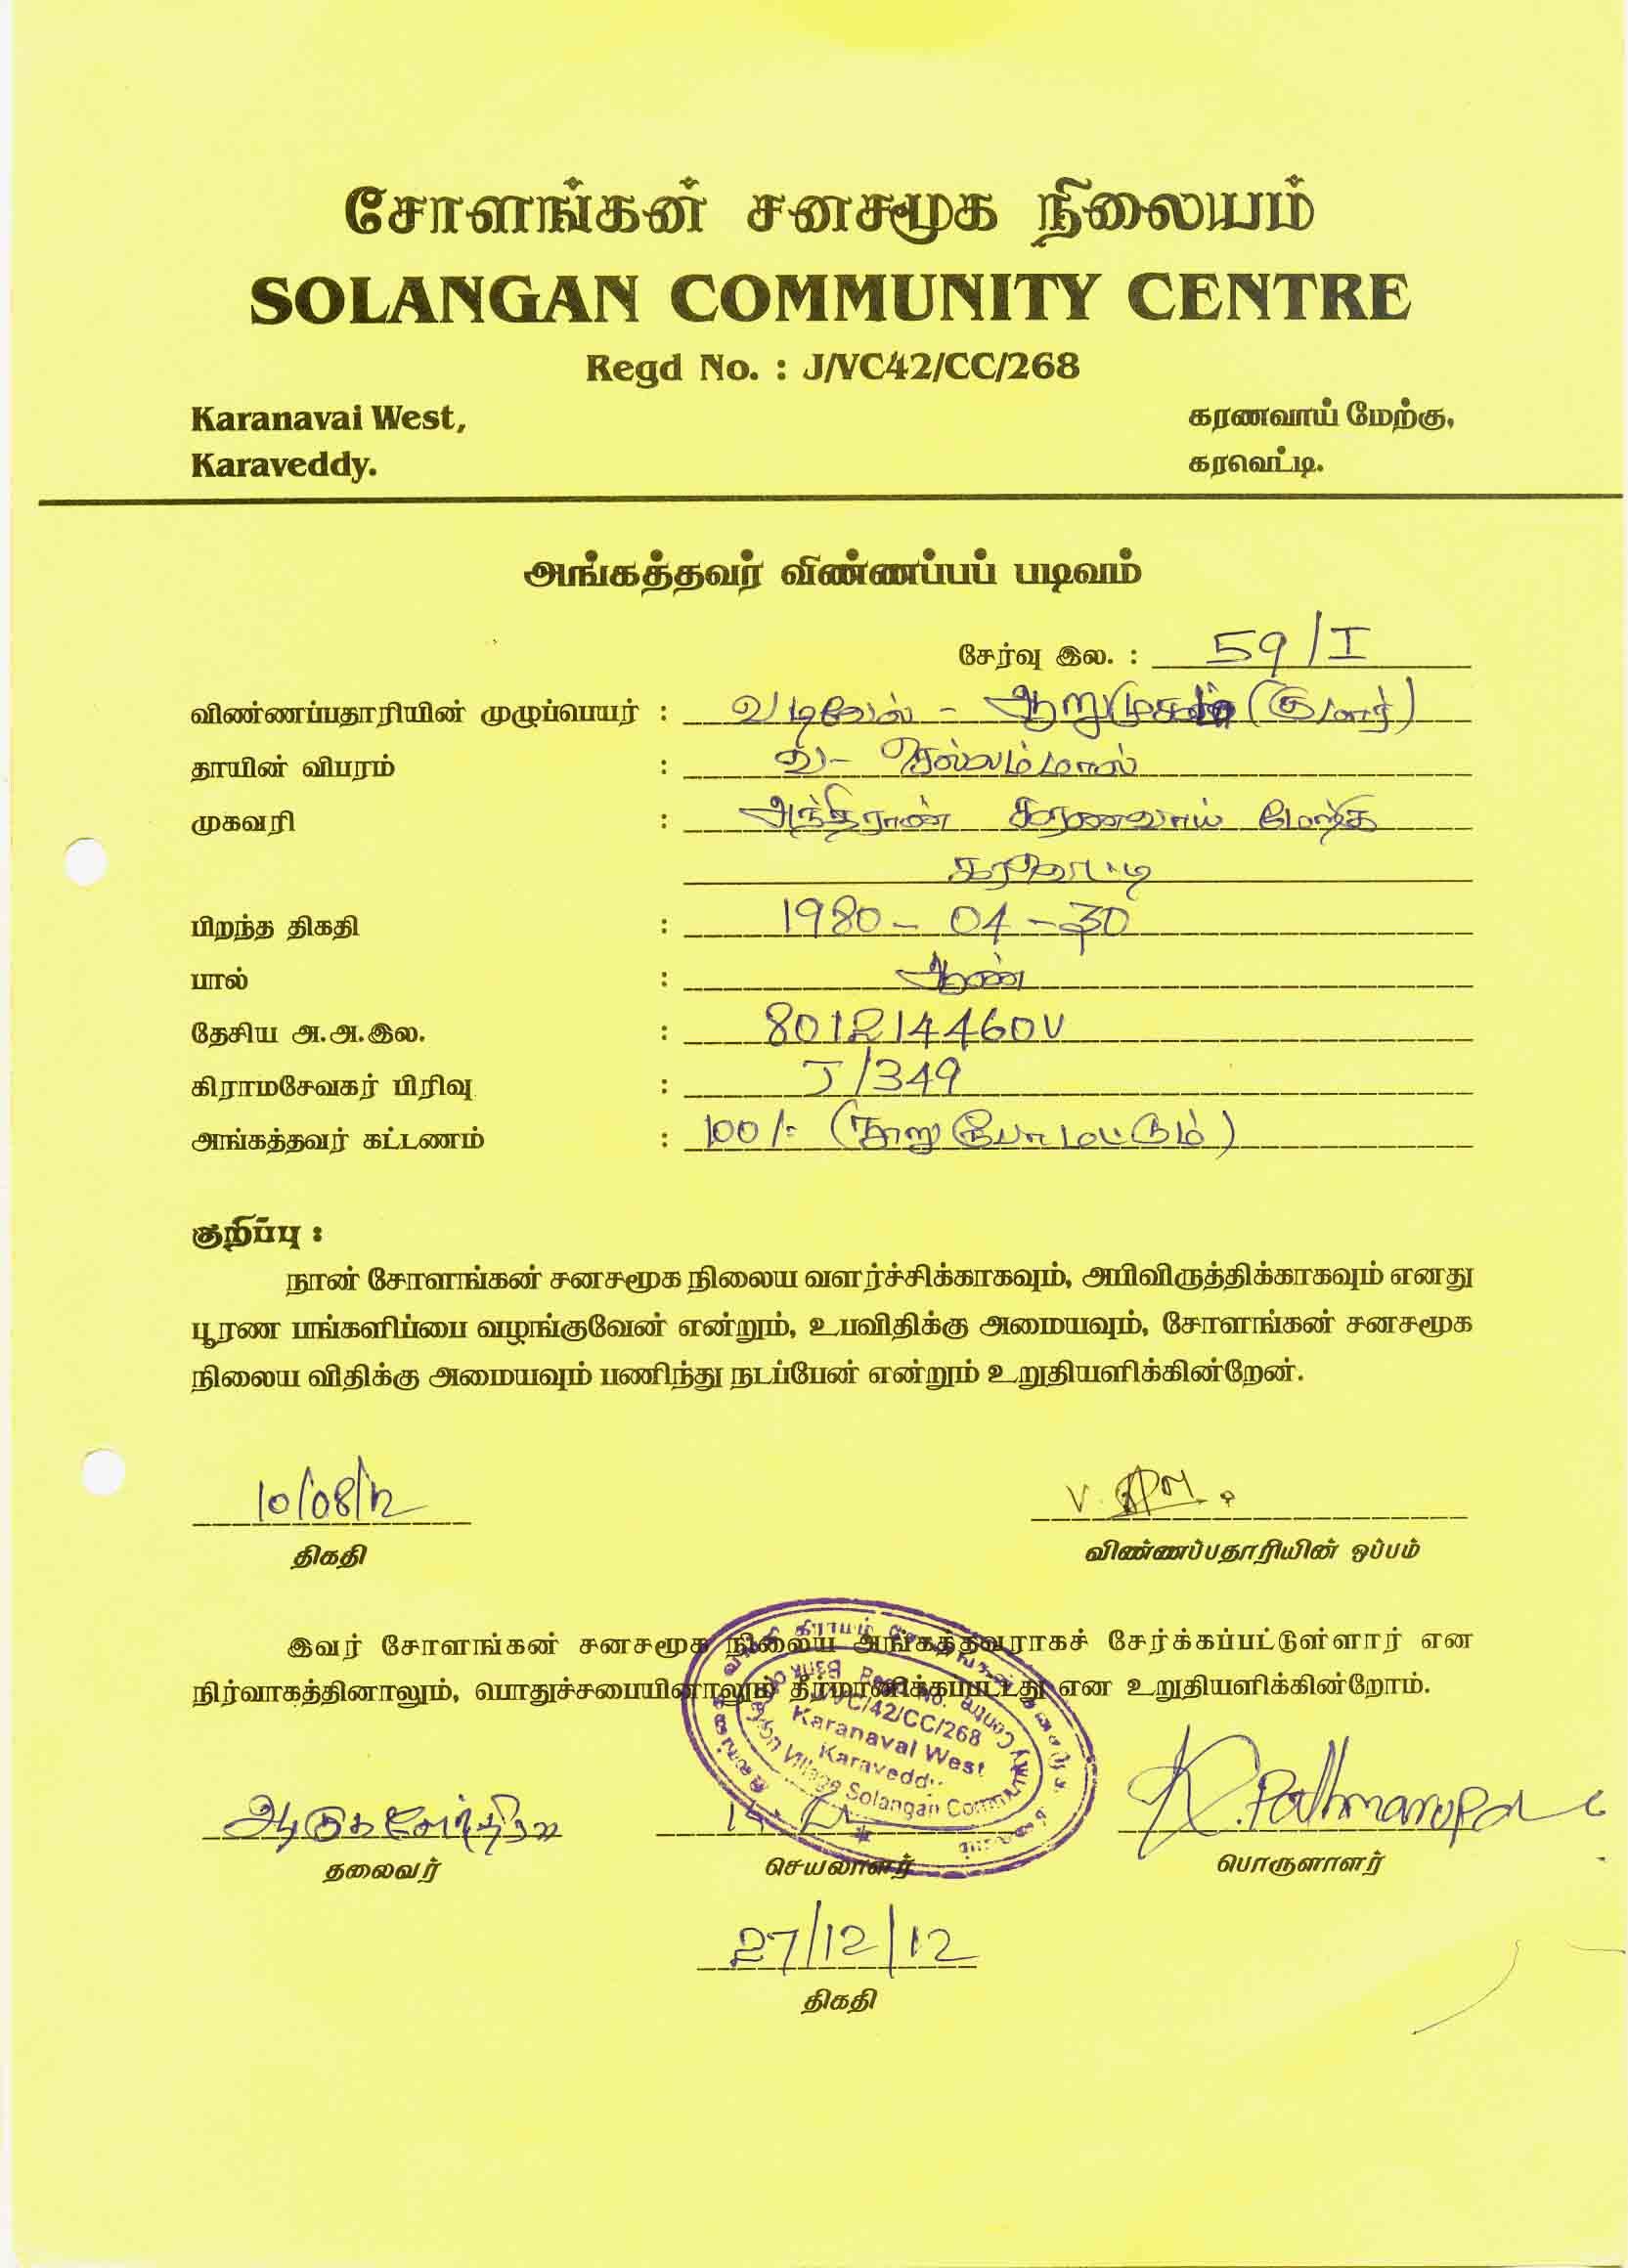 சோளங்கன் சனசமூக நிலையம்
SOLANGAN COMMUNITY CENTRE
Regd No. : J/VC42/CC/268
Karanavai West,
கரணவாய் மேற்கு,
Karaveddy.
கரவெட்டி.
அங்கத்தவர் விண்ணப்பப் படிவம்
சேர்வு இல. : 59/I
விண்ணப்பதாரியின் முழுப்பெயர் : வடிவேல் - ஆறுமுகம் (குமார்)
தாயின் விபரம் : வ- செல்லம்மாள்
முகவரி : அந்திராண் கரணவாய் மேற்கு
கரவெட்டி
பிறந்த திகதி : 1980-04-30
பால் : ஆண்
தேசிய அ.அ.இல. : 801214460V
கிராமசேவகர் பிரிவு : J/349
அங்கத்தவர் கட்டணம் : 100/- (நூறு ரூபா மட்டும்)
குறிப்பு :
நான் சோளங்கன் சனசமூக நிலைய வளர்ச்சிக்காகவும், அபிவிருத்திக்காகவும் எனது
பூரண பங்களிப்பை வழங்குவேன் என்றும், உபவிதிக்கு அமையவும், சோளங்கன் சனசமூக
நிலைய விதிக்கு அமையவும் பணிந்து நடப்பேன் என்றும் உறுதியளிக்கின்றேன்.
10/08/12
திகதி
விண்ணப்பதாரியின் ஒப்பம்
இவர் சோளங்கன் சனசமூக நிலைய அங்கத்தவராகச் சேர்க்கப்பட்டுள்ளார் என
நிர்வாகத்தினாலும், பொதுச்சபையினாலும் தீர்மானிக்கப்பட்டது என உறுதியளிக்கின்றோம்.
Regd No.
J/VC/42/CC/268
Karanavai West
Karaveddy
Village Solangan Community Centre
K. Pathmarupa
தலைவர்
செயலாளர்
பொருளாளர்
27/12/12
திகதி